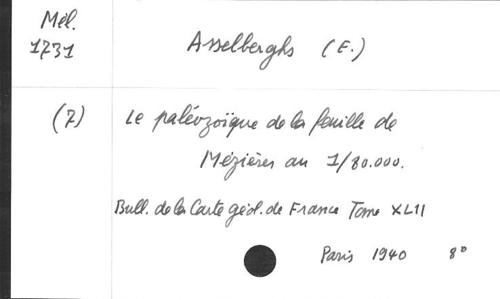 Mél.
1731
Asselberghs (E.)
(7)
Le paléozoïque de la feuille de
Mézières au 1/80.000.
Bull. de la Carte géol. de France Tome XLII
Paris 1940 8°